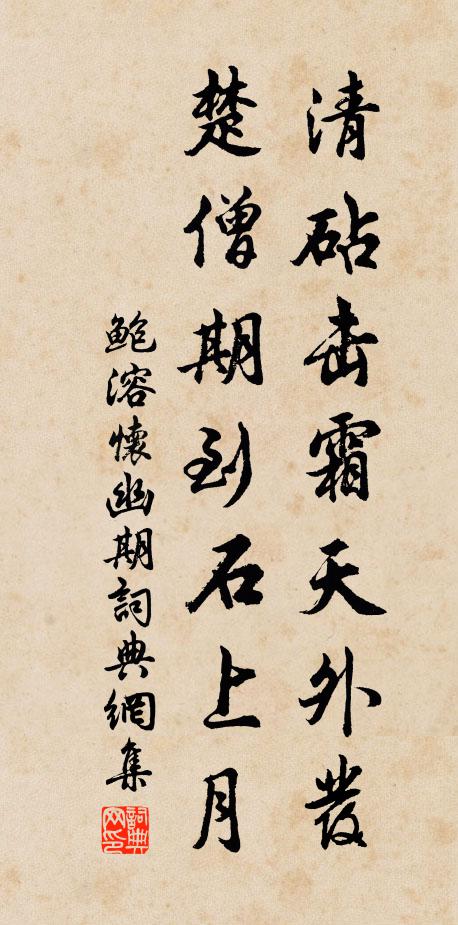 清砧击霜天外發
楚僧期到石上月
鲍溶懷幽期詞典網集
詞典网印